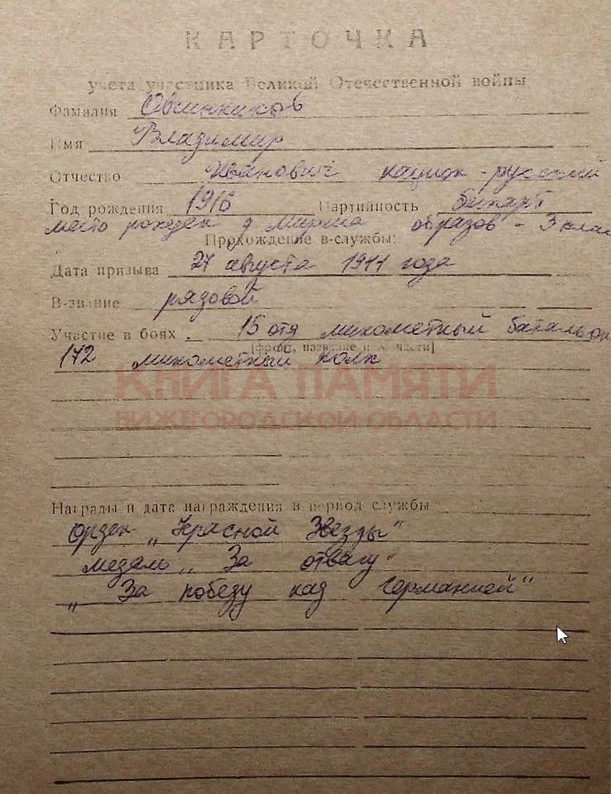 КАРТОЧКА
учета участника Великой Отечественной войны
Фамилия Овчинников
Имя Владимир
Отчество Иванович национ - русский
Год рождения 1916 Партийность беспарт
место рожден д образов - 3 клас
Прохождение в-службы:
Дата призыва 27 августа 1941 года
В-звание рядовой
Участие в боях 15 отд минометный батальон
[фронт, название и № части]
172 минометный полк
КНИГА ПАМЯТИ
НИЖЕГОРОДСКОЙ ОБЛАСТИ
Награды и дата награждения в период службы
орден „Красной Звезды"
медаль „За отвагу"
„За победу над Германией"